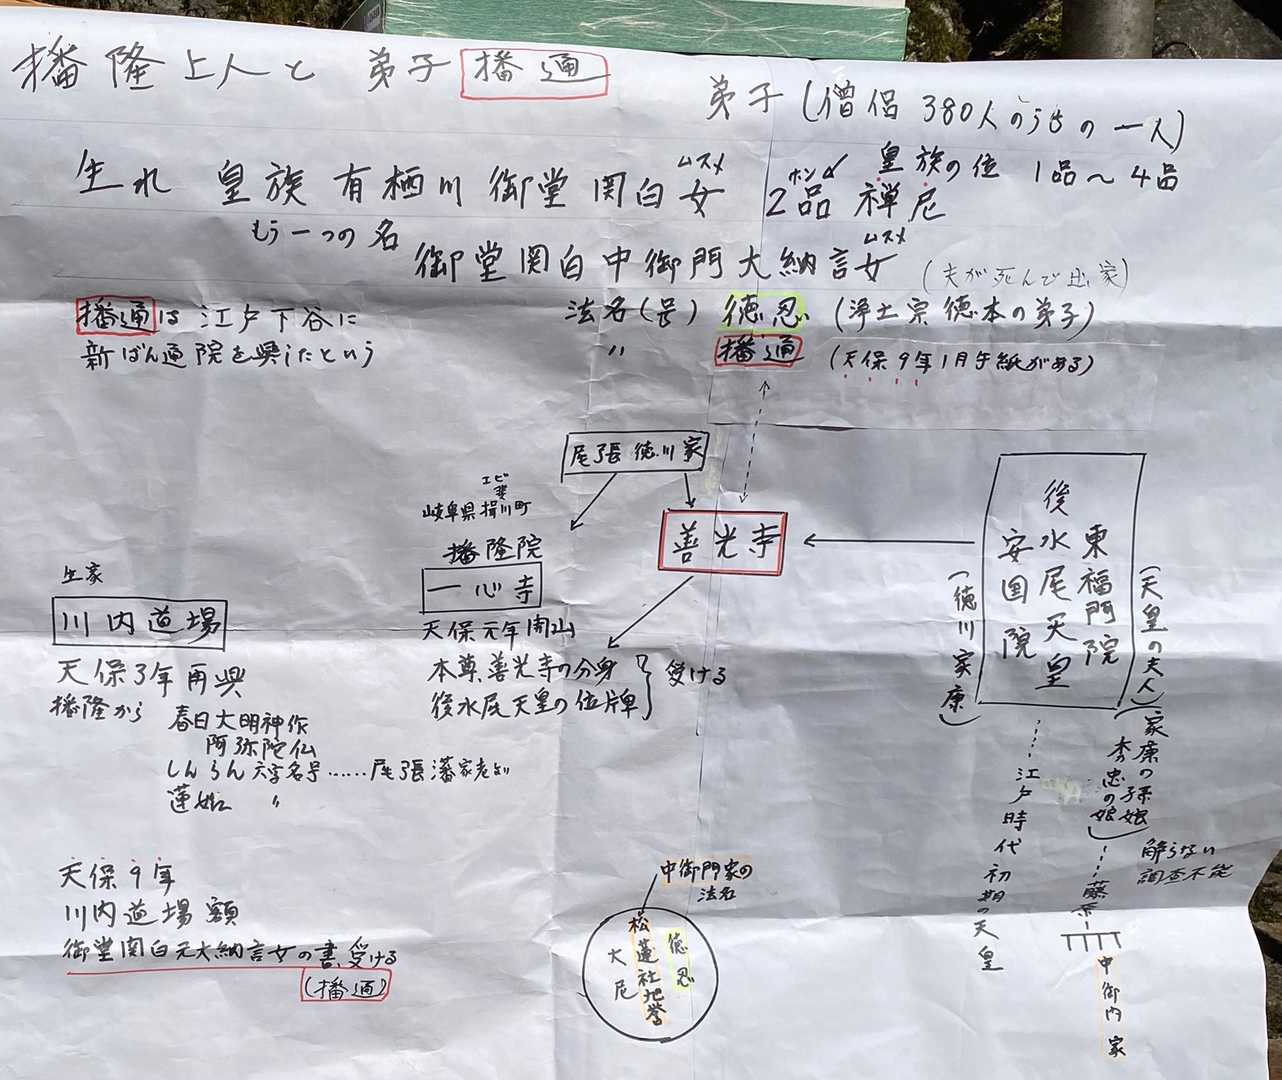 播隆上人と 弟子 播通
弟子(僧侶 380人のうちの一人)
生れ 皇族有栖川御堂関白女 ムスメ
2品禅尼 ホン
皇族の位 1品～4品
もう一つの名
御堂関白中御門大納言女 ムスメ
(夫が死んで出家)
法名(号) 徳忍 (浄土宗徳本の弟子)
〃 播通 (天保9年1月手紙がある)
播通は江戸下谷に
新ばん通院を興したという
尾張徳川家
善光寺
エビ
岐阜県揖斐川町
播隆院
一心寺
天保元年開山
本尊善光寺の分身
後水尾天皇の位牌
受ける
生家
川内道場
天保3年再興
播隆から
春日大明神作
阿弥陀仏
しんらん六字名号……尾張藩家老より
蓮如 〃
東福門院
後水尾天皇
安国院
(天皇の夫人)
(徳川家康)
(家康の孫娘
秀忠の娘)
……江戸時代初期の天皇
……藤原
中御内家
解らない
調査不能
天保9年
川内道場額
御堂関白元大納言女の書、受ける
(播通)
中御門家の
法名
徳忍
松蓮社地誉
大尼